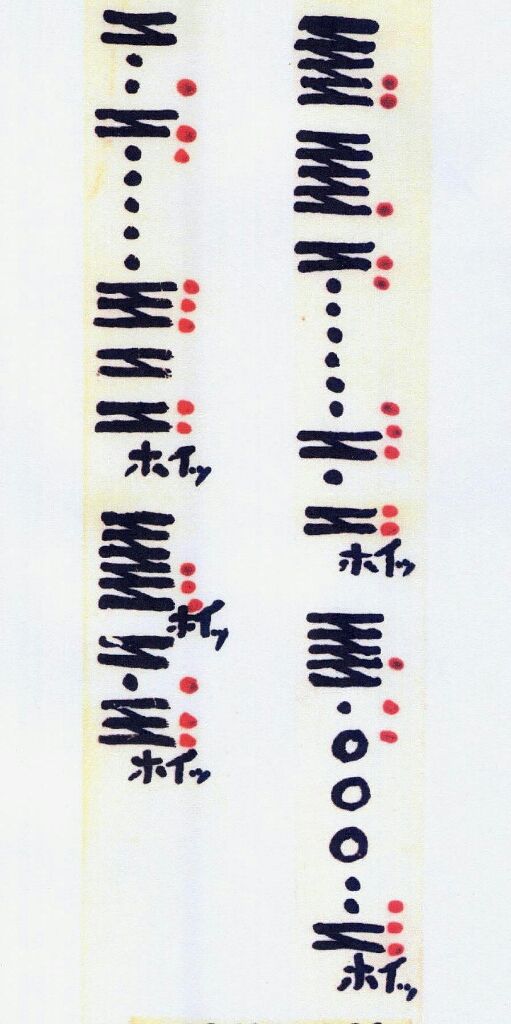 ホイッ
ホイッ
ホイッ
ホイッ
ホイッ